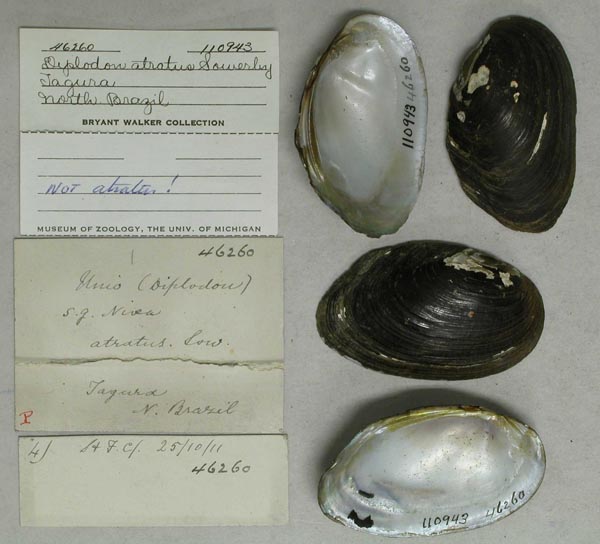 46260 110943
Diplodon atratus Sowerby
Tagura
North Brazil
BRYANT WALKER COLLECTION
NOT atratus!
MUSEUM OF ZOOLOGY, THE UNIV. OF MICHIGAN
46260
Unio (Diplodon)
s.g. Nixa
atratus. Sow.
Tagura
N. Brazil
P
4) H.F.C/. 25/10/11
46260
110943 46260
110943 46260